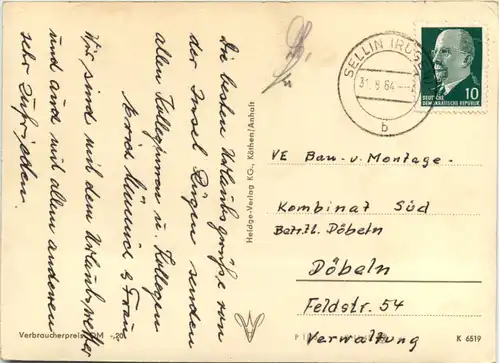 Die besten Urlaubsgrüße von
der Insel Rügen senden
allen Kolleginnen u. Kollegen
& Frau
Wir sind mit dem Urlaubswetter
und auch mit allem anderen
sehr zufrieden.
Heldge-Verlag KG., Köthen/Anhalt
SELLIN (RÜGEN)
31.8.64
b
10
DEUTSCHE
DEMOKRATISCHE REPUBLIK
VE Bau- u. Montage-
Kombinat Süd
Betr.tl. Döbeln
Döbeln
Feldstr. 54
Verwaltung
Verbraucherpreis DM -,20
K 6519